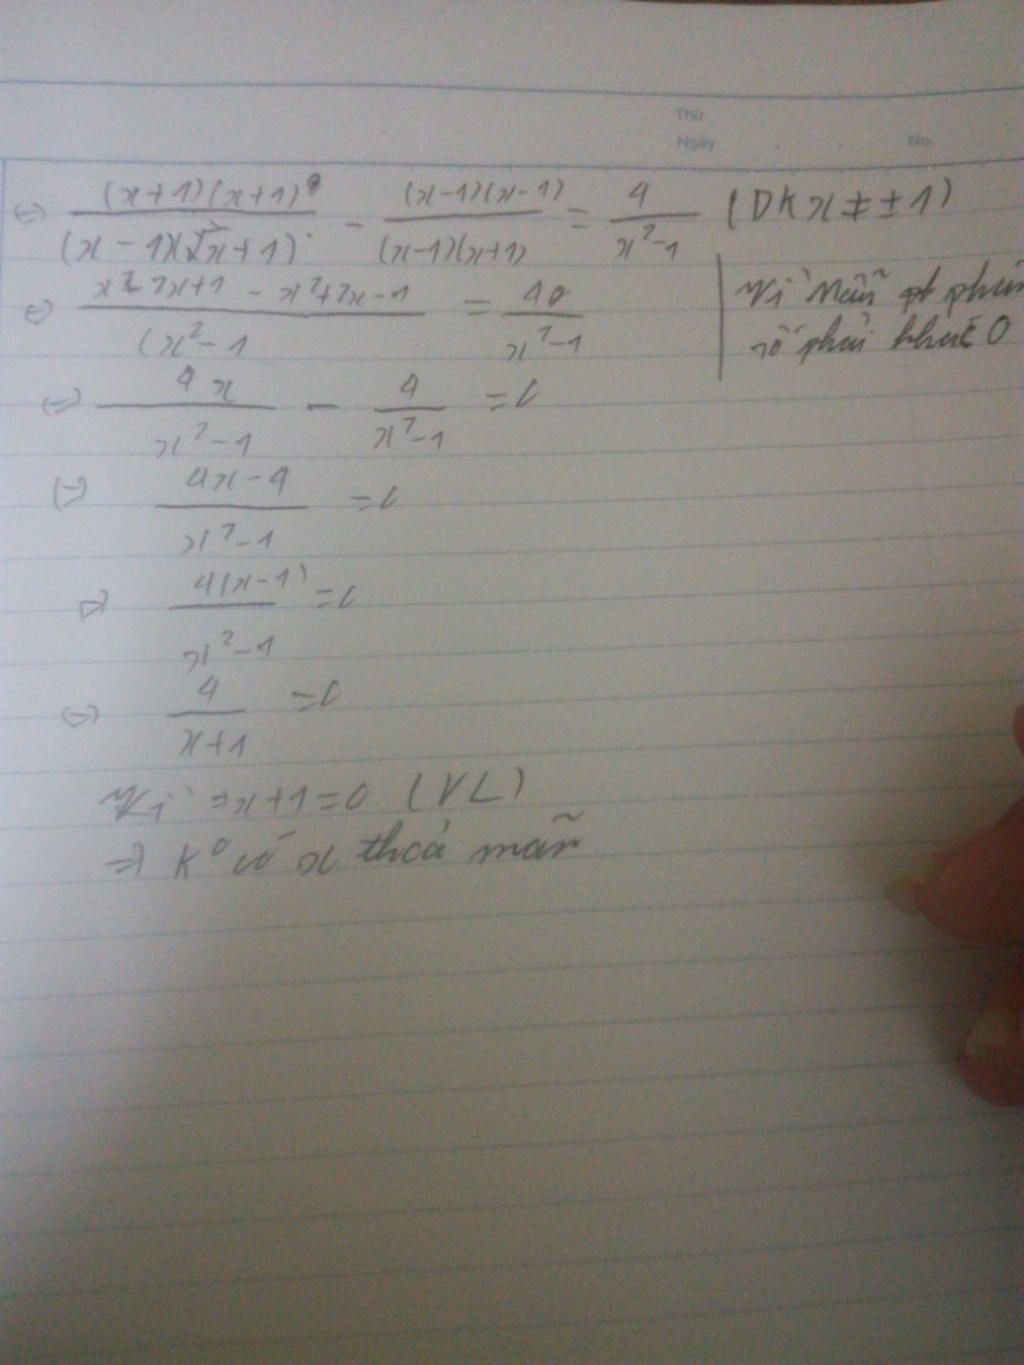 Thứ
Ngày No.
⇔ (x+1)(x+1) / (x-1)(x+1) - (x-1)(x-1) / (x-1)(x+1) = 4 / x²-1 (DK x ≠ ±1)
⇔ x²+2x+1 - x²+2x-1 / (x²-1 = 4 / x²-1
Vì Mẫu pt phân
số phải khác 0
⇔ 4x / x²-1 - 4 / x²-1 = 0
⇔ 4x-4 / x²-1 = 0
⇔ 4(x-1) / x²-1 = 0
⇔ 4 / x+1 = 0
Vì x+1=0 (VL)
⇒ K° có x thoả mãn